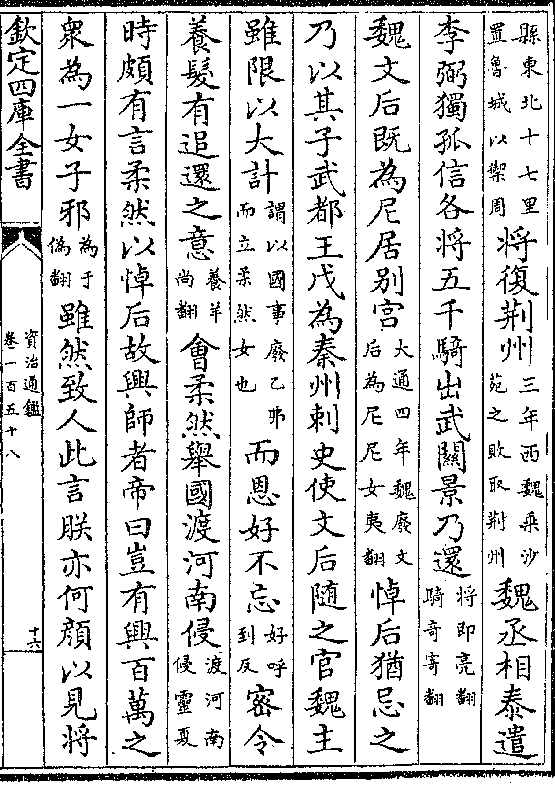 縣東北十七里置魯城以禦周將復荆州三年西魏乗沙苑之敗取荆州魏丞相泰遣
李弼獨孤信各將五千騎出武關景乃還將即亮翻騎奇寄翻
魏文后既為尼居别宫大通四年魏廢文后為尼尼女夷翻悼后猶忌之
乃以其子武都王戊為秦州刺史使文后隨之官魏主
雖限以大計謂以國事廢乙弗而立柔然女也而恩好不忘好呼到反密令
養髮有追還之意養羊尚翻會柔然舉國渡河南侵渡河南侵靈夏
時頗有言柔然以悼后故興師者帝曰豈有興百萬之
衆為一女子邪為于偽翻雖然致人此言朕亦何顔以見將
欽定四庫全書
資治通鑑
卷一百五十八
十六